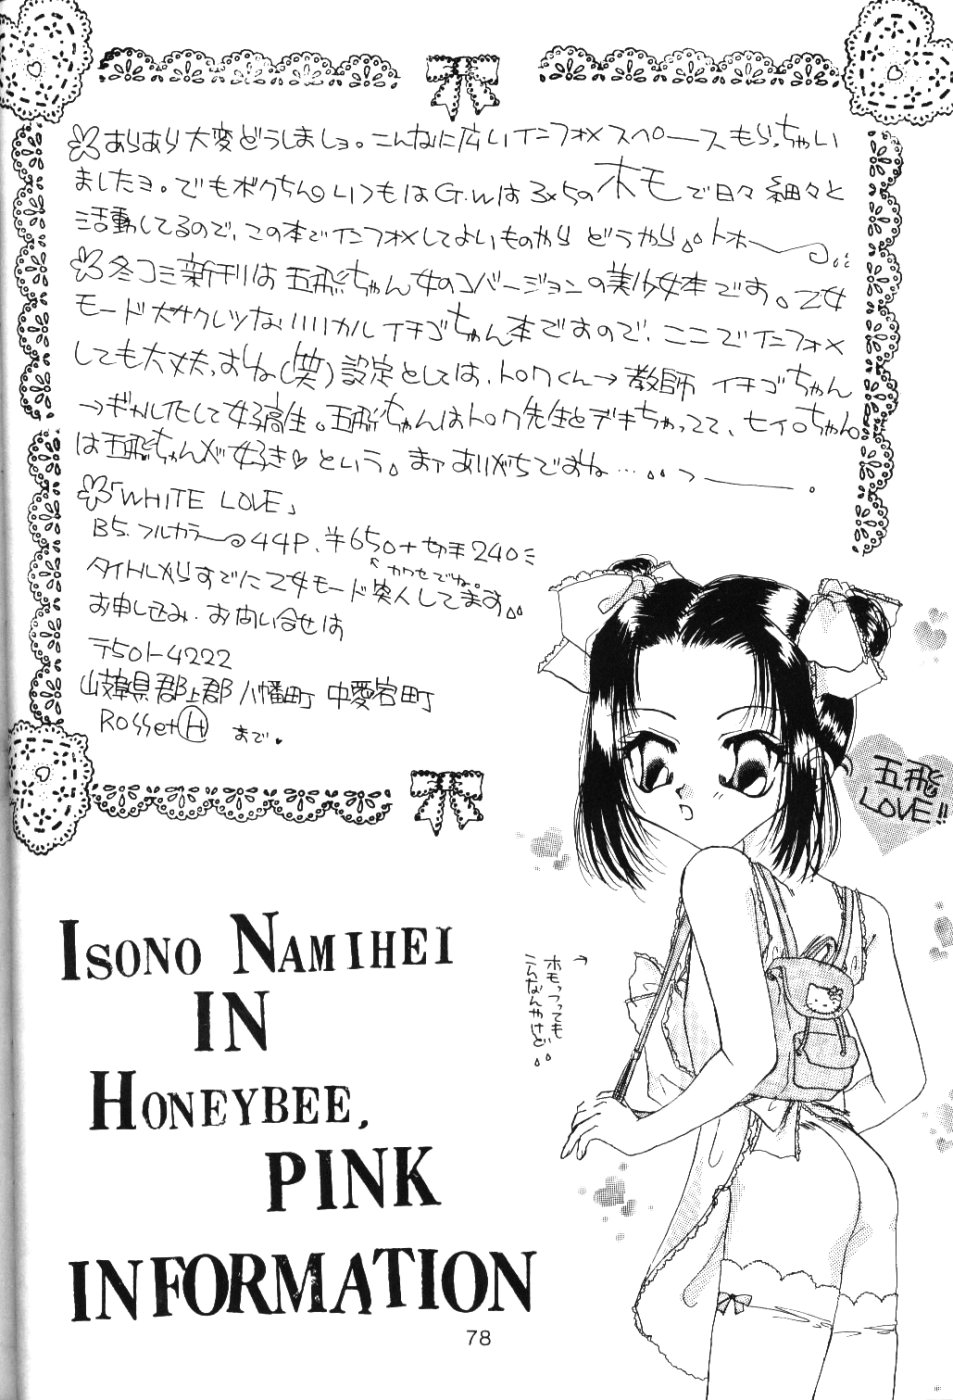 あらあら大変どうしましョ。こんなに広いインフォメスペースもらっちゃい
ましたョ。でもボクちんいつもはG.Wは3×5のホモで日々細々と
活動してるので、この本でインフォメしてよいものやらどうやら。トホー
冬コミ新刊は五飛ちゃん女のコバージョンの美少女本です。乙女
モード大サクレツなリリカルイチゴちゃん本ですので、ここでインフォメ
しても大丈夫、よね(笑)設定としては、トロワくん→教師 イチゴちゃん
→ギャル化して女子高生。五飛ちゃんはトロワ先生とデキちゃってて、セイロちゃん
は五飛ちゃんが好き♡という。まァありがちですよね…。。
「WHITE LOVE」
B5.フルカラー 44P、¥650+切手240
カワセでね。
タイトルからすでに乙女モード突入してます。
お申し込み・お問い合せは
〒501-4222
岐阜県郡上郡八幡町中愛宕町
Rosset Ⓗ まで。
五飛
LOVE!!
→
ホモっつっても
こんなんやけど。。
ISONO NAMIHEI
IN
HONEYBEE.
PINK
INFORMATION
78